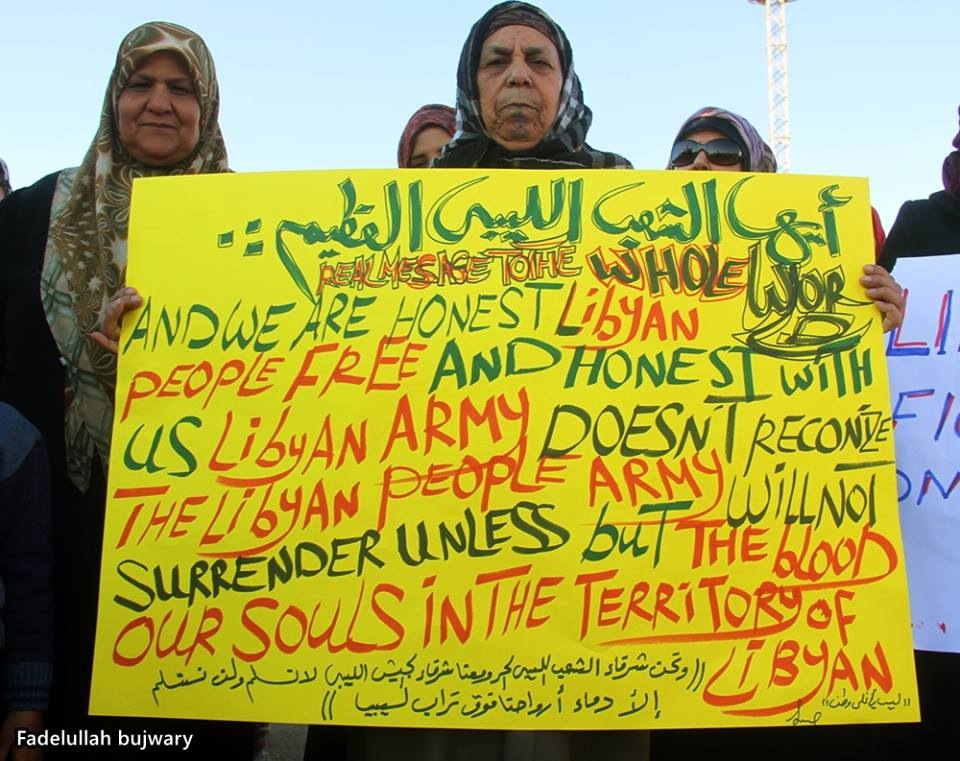 أيها الشعب الليبي العظيم ::
REAL MESAGE TO THE WHOLE WOR
LD
AND WE ARE HONEST LibyAN
PEOPLE FREE AND HONEST WITH
US LibyAN ARMY DOESN'T RECONIZE
THE LibyAN PEOPLE ARMY WILL NOT
SURRENDER UNLESS buT THE blOOD
OUR SOULS iN THE TERRiTORY OF
LiBYAN
((ونحن شرفاء الشعب الليبي الحر ومعنا شرفاء الجيش الليبي لا نسلم ولن نستسلم
إلا دماء أرواحنا فوق تراب ليبيا ))
LI
FIC
ON
Fadelullah bujwary